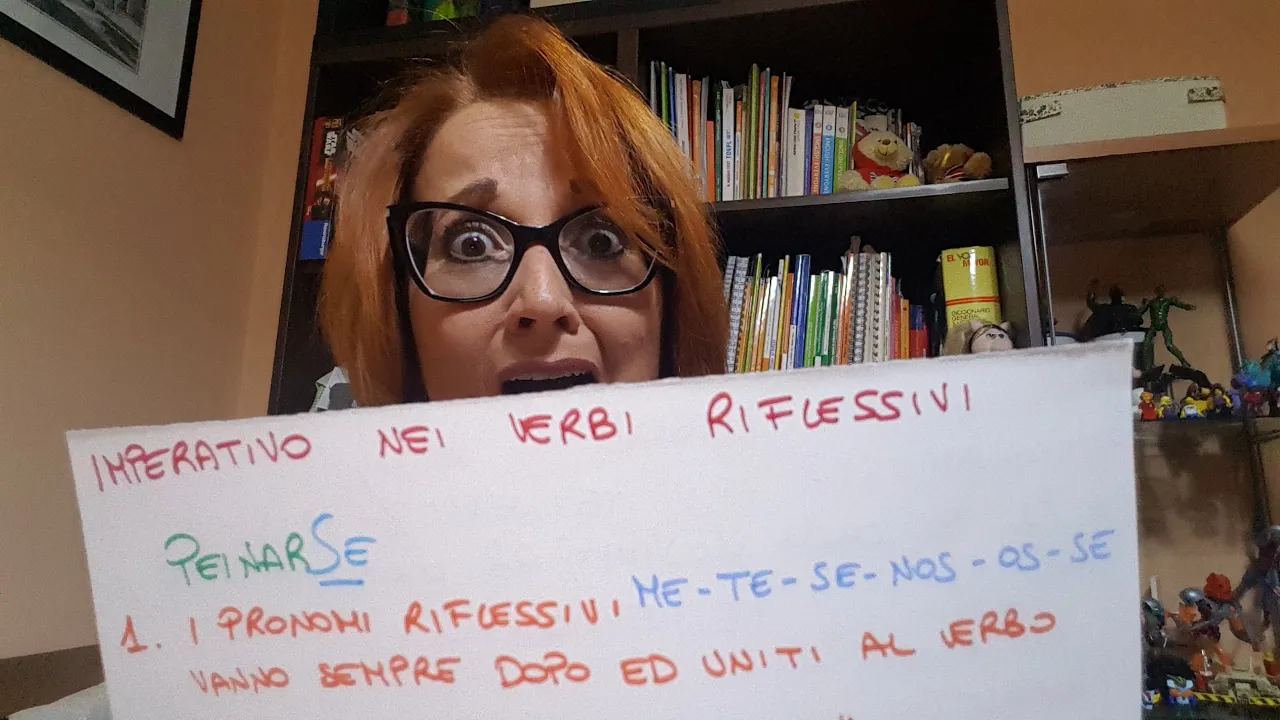 IMPERATIVO NEI VERBI RIFLESSIVI
PEINARSE
ME-TE-SE-NOS-OS-SE
1. I PRONOMI RIFLESSIVI
VANNO SEMPRE DOPO ED UNITI AL VERBO
EL
MAYOR
DICCIONARIO
GENERAL
TOEFL